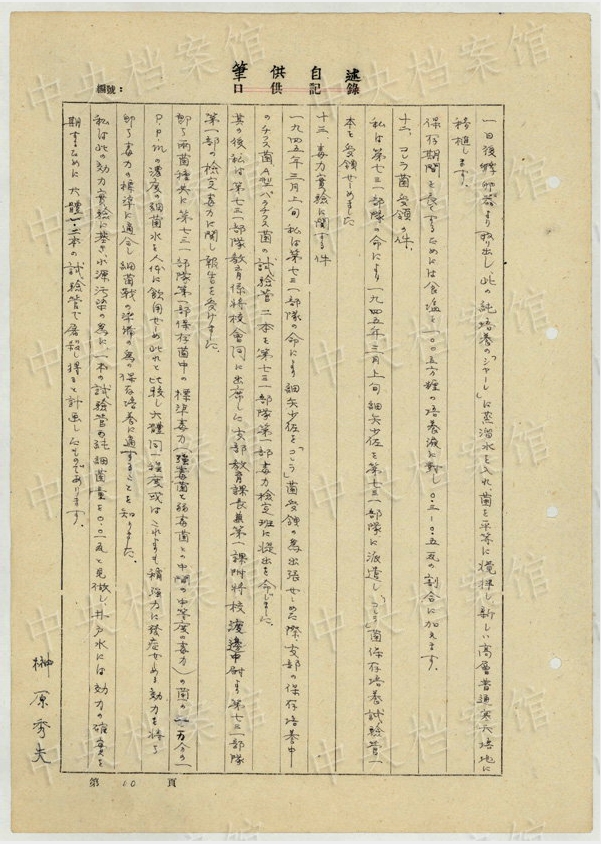 筆供自述
口供記錄
編號：
一日後孵卵器より取り出し、此の純培養の「シャーレ」に蒸溜水を入れ菌を平等に攪拌し新しい高層普通寒天培地に
移植します。
保存期間を長くするためには食塩を一〇〇立方糎の培養液に対し〇.三－〇.五瓦の割合に加えます。
十二、コレラ菌受領の件。
私は第七三一部隊の命により一九四五年三月上旬細矢少佐を第七三一部隊に派遣し「コレラ」菌保存培養試驗管一
本を受領せしめました
十三、毒力實驗に関する件
一九四五年三月上旬私は第七三一部隊の命により細矢少佐を「コレラ」菌受領の為出張せしめた際支部の保存培養中
のチフス菌A型パラチフス菌の試驗管二本を第七三一部隊第一部毒力檢定班に提出を命じました。
其の後私は第七三一部隊教育係将校會同に出席した支部教育課長兼第一課附将校渡邊中尉より第七三一部隊
第一部の檢定毒力に関し報告を受けました。
即ち両菌種共に第七三一部隊第一部保存菌中の標準毒力（強毒菌と弱毒菌との中間の中等度の毒力）の菌の
P.P.mの濃度の細菌水を人体に飲用せしめ此れと比較し大體同一強度或はこれよりも稍強力に發症せしめる効力を持ち
即ち毒力の標準に適合し細菌戰の準備の為の保存培養に適することを知りました。
私は此の効力實驗に基き、水源汚染の為に、一本の試驗管の純細菌量を〇.〇一瓦と見做し、井戸水には効力の確実を
期するために大體一、二本の試驗管で為し得ると計画したものであります。
榊原秀夫
第 10 頁
中央档案馆